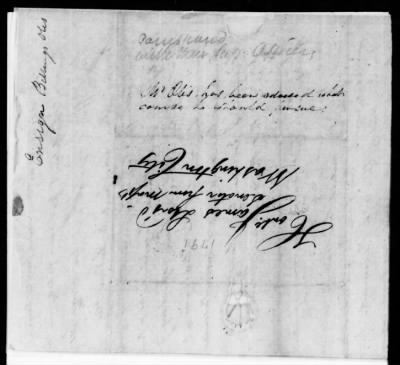 Ensign Billings Otis
Officer
Mr Otis has been advised what
course he should pursue.
Honble
James Lloyd
Senator from Massts
Washington City
1791